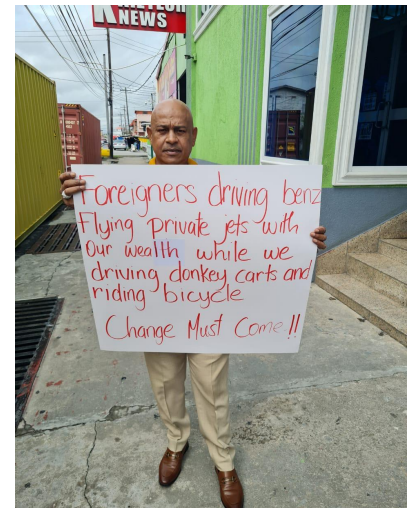 NEWS
Foreigners driving benz
Flying private jets with
Our wealth while we
driving donkey carts and
riding bicycle
Change Must Come!!